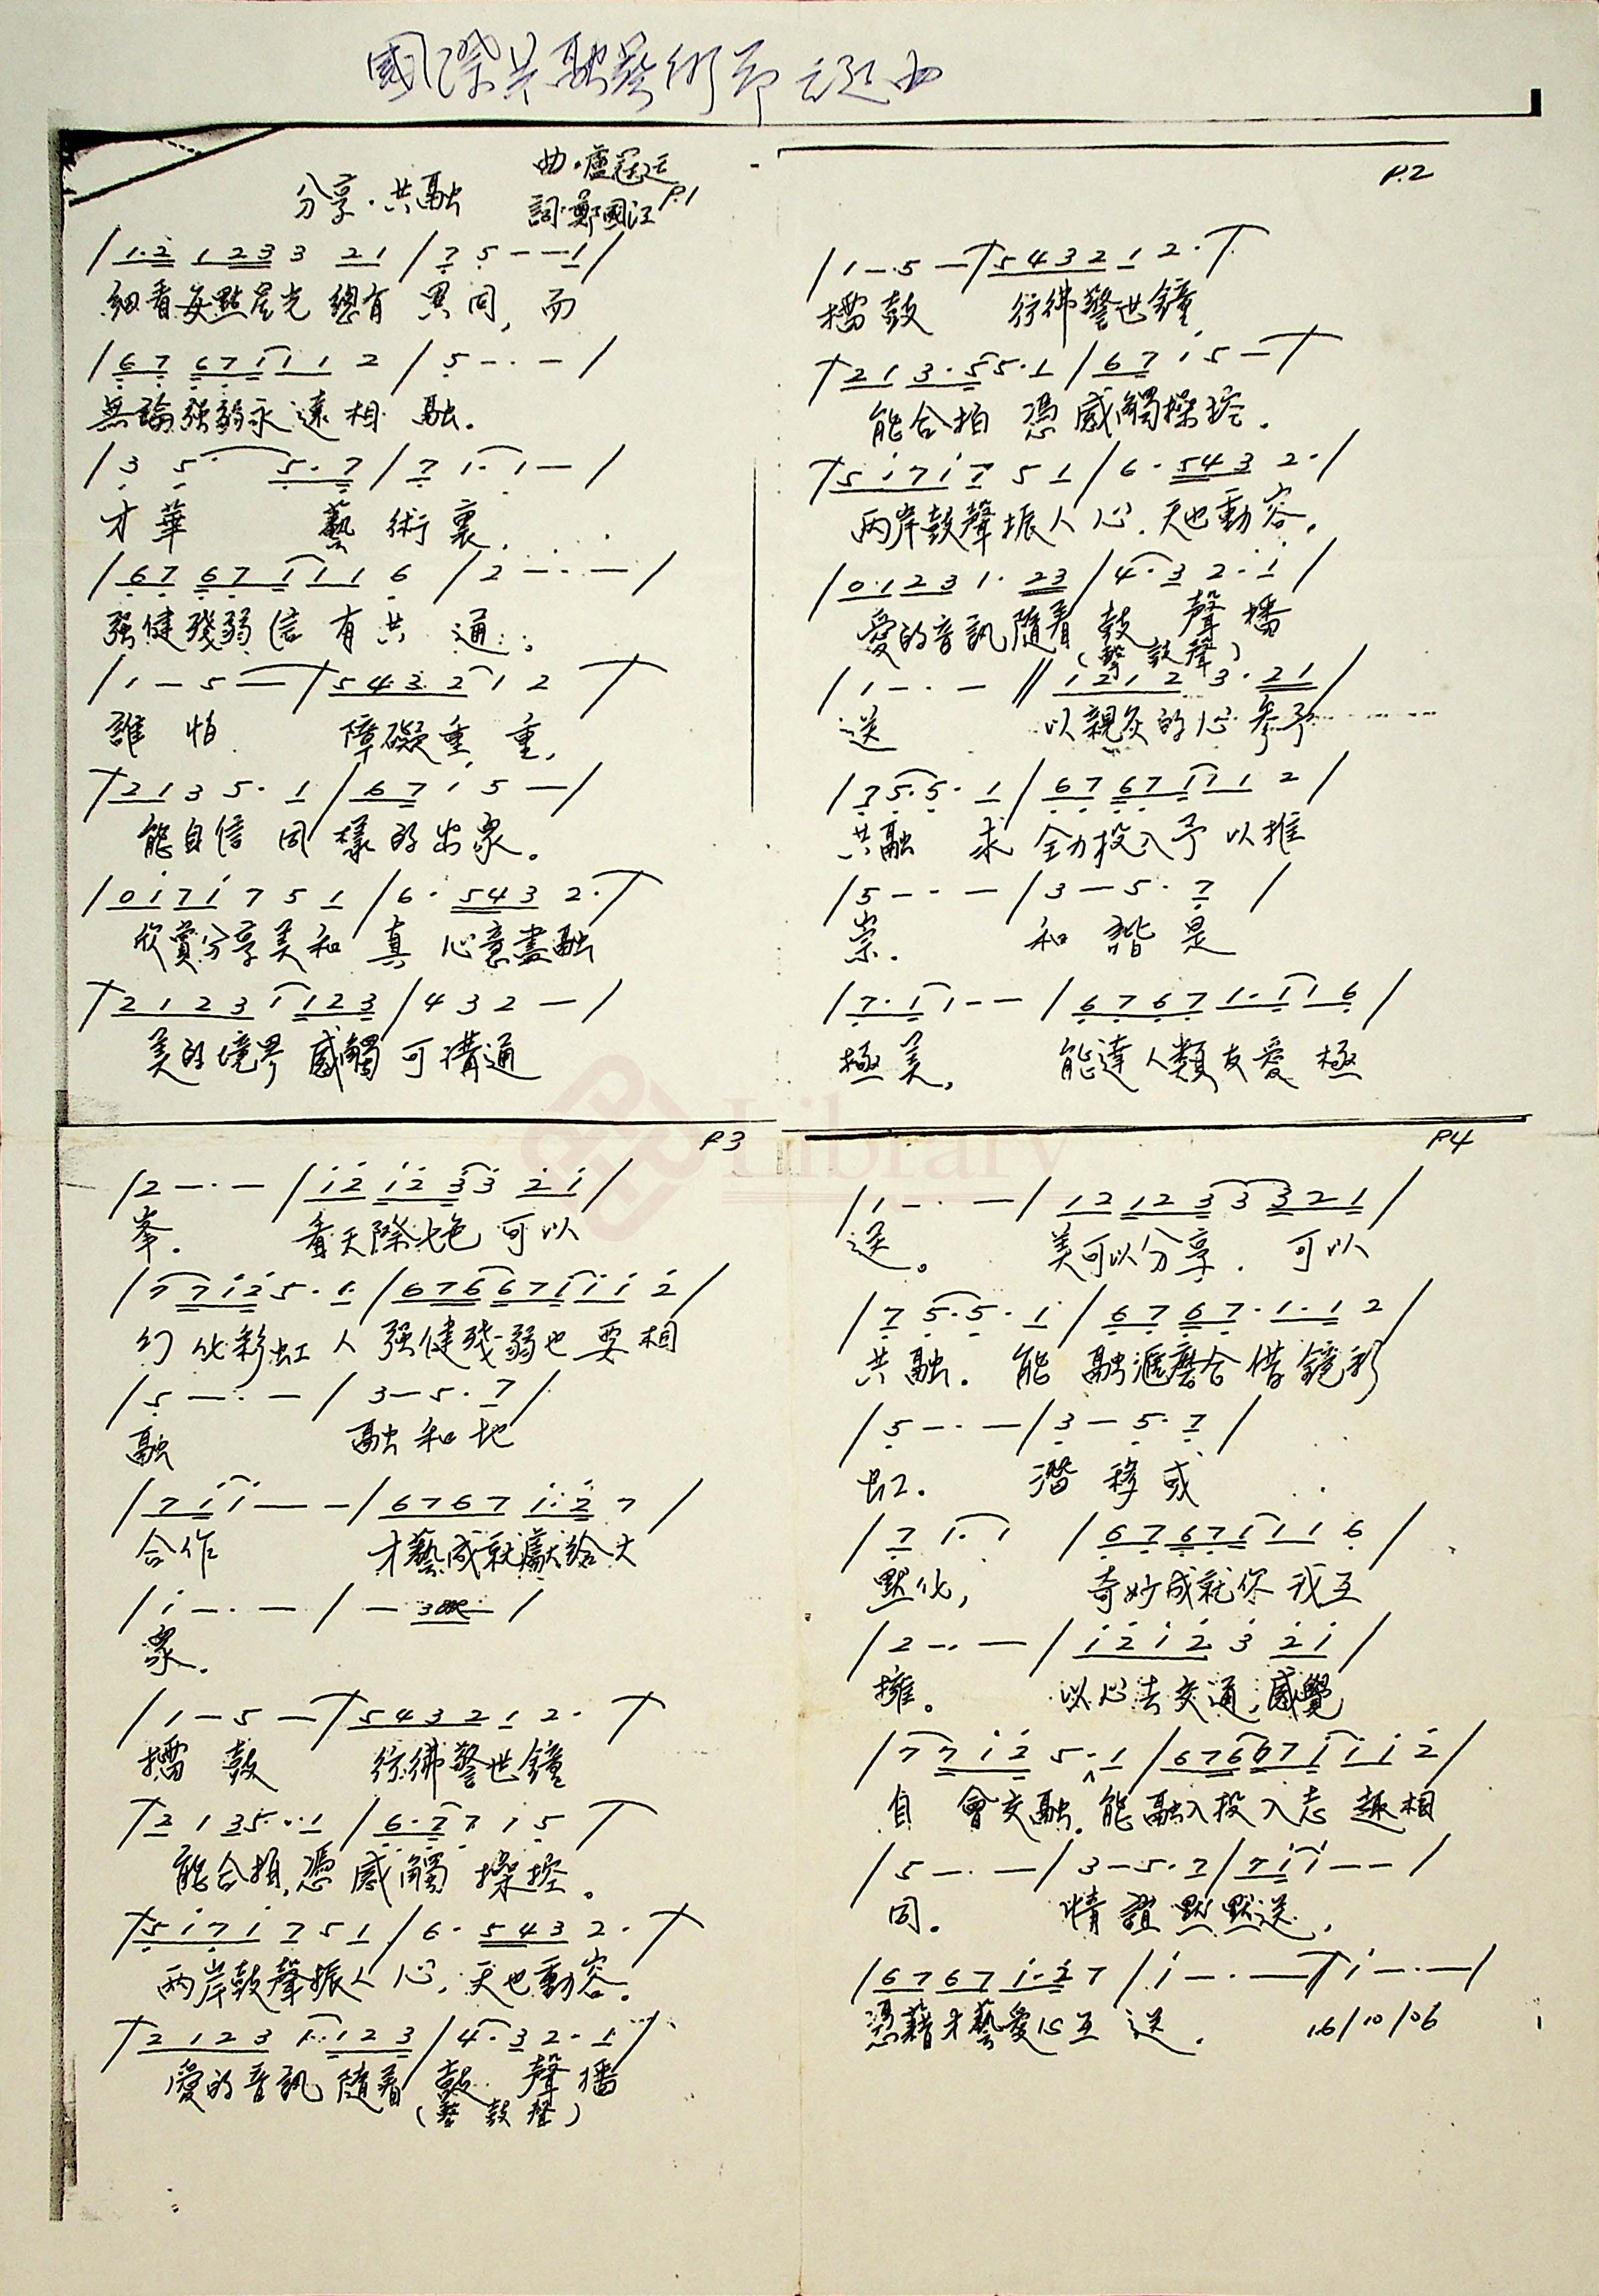 國際共融藝術節主題曲
分享·共融
曲·盧冠廷
詞·鄭國江
P.1
/ 1·2 1 2 3 3 2 1 / 7 5 - - 1 /
細看每點星光總有異同,而
/ 6 7 6 7 1 1 1 2 / 5 - · - /
無論強弱永遠相融。
/ 3 5· 5·7 / 7 1· 1 - /
才華 藝術裏,
/ 6 7 6 7 1 1 1 6 / 2 - · - /
強健殘弱信有共通。
/ 1 - 5 - / 5 4 3 2 1 2 /
誰怕 障礙重重,
/ 2 1 3 5· 1 / 6 7 1 5 - /
能自信 同樣的出眾。
/ 0 1 7 1 7 5 1 / 6· 5 4 3 2· /
欣賞分享美和真 心意盡融
/ 2 1 2 3 1 1 2 3 / 4 3 2 - /
美的境界 感觸可溝通
P.2
/ 1 - · 5 - / 5 4 3 2 1 2· /
擂鼓 彷彿警世鐘
/ 2 1 3· 5 5· 1 / 6 7 1 5 - /
能合拍 憑感觸操控。
/ 5 1 7 1 7 5 1 / 6· 5 4 3 2· /
兩岸鼓聲振人心,天也動容。
/ 0·1 2 3 1· 2 3 / 4·3 2·1 /
愛的音訊隨着鼓聲播
(擊鼓聲)
/ 1 - · - // 1 2 1 2 3· 2 1 /
送 以親炙的心參予
/ 7 5· 5· 1 / 6 7 6 7 1 1 1 2 /
共融 求全力投入予以推
/ 5 - · - / 3 - 5· 7 /
崇. 和諧是
/ 7·1 1 - - / 6 7 6 7 1·1 1 6 /
極美, 能達人類友愛極
P3
/ 2 - · - / 1 2 1 2 3 3 2 1 /
峯. 看天際七色可以
/ 7 7 1 2 5· 1 / 6 7 6 6 7 1 1 1 2 /
幻化彩虹人強健殘弱也要相
/ 5 - · - / 3 - 5· 7 /
融 融和地
/ 7 1 1 - - / 6 7 6 7 1·2 7 /
合作 才藝成就獻給大
/ 1 - · - / -
眾.
/ 1 - 5 - / 5 4 3 2 1 2· /
擂鼓 彷彿警世鐘
/ 2 1 3 5· · 1 / 6·7 7 1 5 /
能合拍,憑感觸操控。
/ 5 1 7 1 7 5 1 / 6· 5 4 3 2· /
兩岸鼓聲振人心,天也動容。
/ 2 1 2 3 1· 1 2 3 / 4·3 2·1 /
愛的音訊隨着鼓聲播
(擊鼓聲)
P4
/ 1 - · - / 1 2 1 2 3 3 3 2 1 /
送。 美可以分享.可以
/ 7 5· 5· 1 / 6 7 6 7· 1·1 2 /
共融.能融滙磨合借鏡彩
/ 5 - · - / 3 - 5· 7 /
虹. 潛移或
/ 7 1· 1 / 6 7 6 7 1 1 1 6 /
默化, 奇妙成就你我互
/ 2 - · - / 1 2 1 2 3 2 1 /
擁。 以心去交通,感覺
/ 7 7 1 2 5· 1 / 6 7 6 6 7 1 1 1 2 /
自會交融.能融入投入志趣相
/ 5 - · - / 3 - 5· 7 / 7 1 1 - - /
同. 情誼默默送,
/ 6 7 6 7 1·2 7 / 1 - · - / 1 - · - /
憑藉才藝愛心互送.
16/10/06
Library